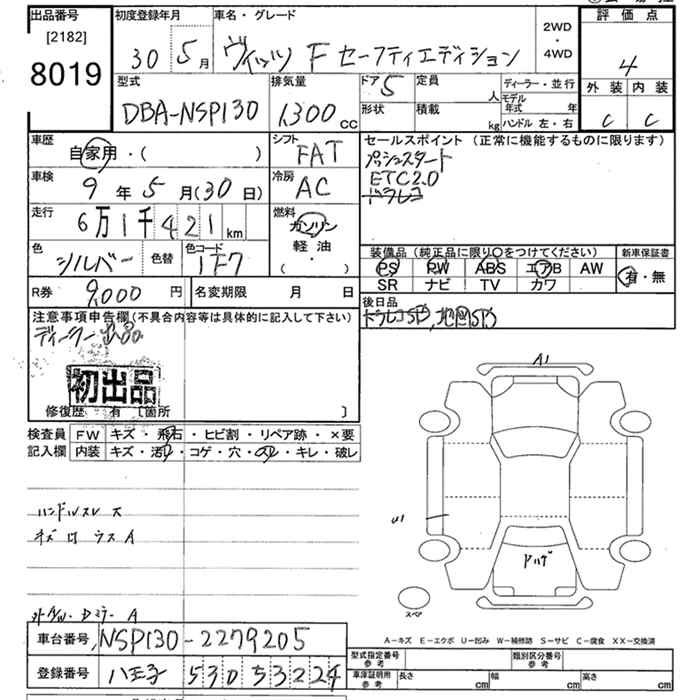 出品番号
[2182]
8019
初度登録年月
30 5月
車名・グレード
ヴィッツ F セーフティエディション
2WD
・
4WD
評価点
4
外装 内装
C C
型式
DBA-NSP130
排気量
1,300 cc
ドア 5
形状
定員
人
積載
kg
ディーラー・並行
モデル年式 年
ハンドル 左・右
車歴
自家用・( )
シフト
FAT
セールスポイント (正常に機能するものに限ります)
プッシュスタート
ETC2.0
ドラレコ
車検
9年5月(30日)
冷房
AC
走行
6万1千421km
燃料
ガソリン
軽油・
( )
色
シルバー
色替
色コード
1F7
装備品 (純正品に限り○をつけてください)
PS PW ABS エアB AW
SR ナビ TV カワ
新車保証書
有・無
R券 9,000円
名変期限 月 日
後日品
注意事項申告欄(不具合内容等は具体的に記入して下さい)
初出品
修復歴 有 〔箇所 〕
検査員記入欄
FW キズ・飛石・ヒビ割・リペア跡・×要
内装 キズ・汚れ・コゲ・穴・スレ・キレ・破レ
ハンドルスレ 大
A1
U1
スペア
A-キズ E-エクボ U-凹み W-補修跡 S-サビ C-腐食 XX-交換済
車台番号 NSP130-2279205
登録番号 八王子 530 53224
型式指定番号
参考
類別区分番号
参考
車庫証明用
参考
長さ cm
幅 cm
高さ cm